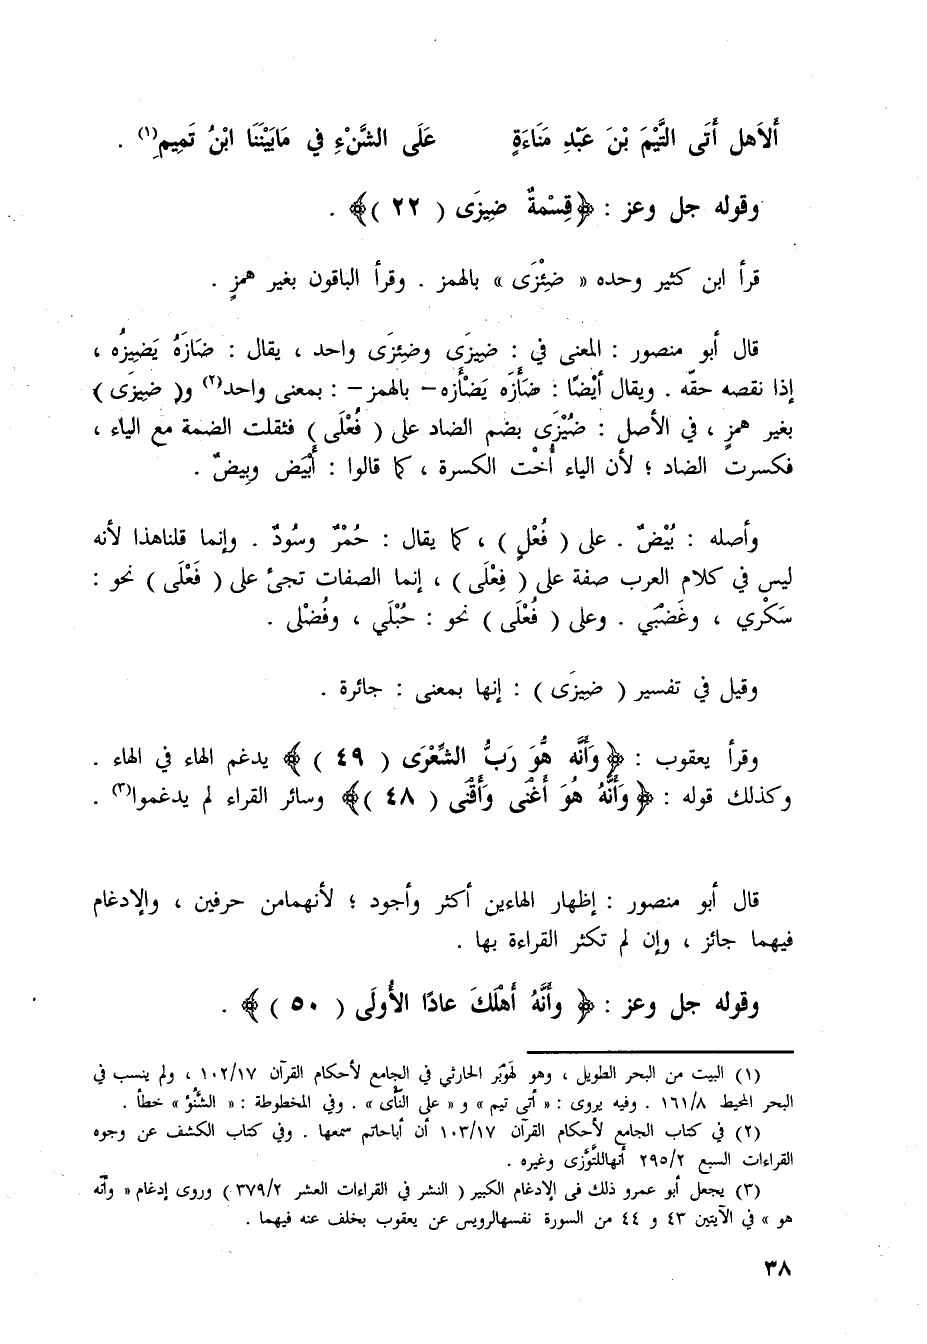 أَلاَهل أَتَى التَّيْمَ بْنَ عَبْدِ مَنَاءَةٍ عَلَى الشَّنْءِ في مَابَيْنَنَا ابْنُ تَمِيمِ(١) .
وقوله جل وعز : ﴿قِسْمةٌ ضِيزَى ( ٢٢ )﴾ .
قرأ ابن كثير وحده « ضِئْزَى » بالهمز . وقرأ الباقون بغير همزٍ .
قال أبو منصور : المعنى في : ضِيزَى وضِئزَى واحد ، يقال : ضَازَهُ يَضِيزُه ،
إذا نقصه حقّه . ويقال أَيْضًا : ضَأَزَه يَضْأَزه– بالهمز – : بمعنى واحد(٢) و( ضِيزَى )
بغير همزٍ ، في الأصل : ضُيْزَى بضم الضاد على ( فُعْلَى ) فثقلت الضمة مع الياء ،
فكسرت الضاد ؛ لأن الياء أُخْت الكسرة ، كما قالوا : أَبْيَض وبِيضٌ .
وأصله : بُيْضٌ . على ( فُعْلٍ ) ، كما يقال : حُمْرٌ وسُودٌ . وإنما قلناهذا لأنه
ليس في كلام العرب صفة على ( فِعْلَى ) ، إنما الصفات تجئ على ( فَعْلَى ) نحو :
سَكْري ، وغَضْبَي . وعلى ( فُعْلَى ) نحو : حُبْلَي ، وفُضْلى .
وقيل في تفسير ( ضِيزَى ) : إنها بمعنى : جائرة .
وقرأ يعقوب : ﴿ وَأَنَّه هُّوَ رَبُّ الشِّعْرَى ( ٤٩ ) ﴾ يدغم الهاء في الهاء .
وكذلك قوله : ﴿ وَأَنَّهُ هُوَ أَغْنَى وَأَقْنَى ( ٤٨ )﴾ وسائر القراء لم يدغموا(٣) .
قال أبو منصور : إظهار الهاءين أكثر وأجود ؛ لأنهمامن حرفين ، والإدغام
فيهما جائز ، وإن لم تكثر القراءة بها .
وقوله جل وعز : ﴿ وأَنَّهُ أَهْلَكَ عادًا الأُولَى ( ٥٠ )﴾ .
(١) البيت من البحر الطويل ، وهو لهَوْبَر الحارثي في الجامع لأحكام القرآن ١٠٢/١٧ ، ولم ينسب في
البحر المحيط ١٦١/٨ . وفيه يروى : « أتى تيم » و « على النَّأى » . وفي المخطوطة : « الشَّنُؤ » خطأ .
(٢) في كتاب الجامع لأحكام القرآن ١٠٣/١٧ أن أباحاتم سمعها . وفي كتاب الكشف عن وجوه
القراءات السبع ٢٩٥/٢ أنهاللتَّوَّزى وغيره .
(٣) يجعل أبو عمرو ذلك فى الإدغام الكبير ( النشر في القراءات العشر ٣٧٩/٢ ) وروى إدغام « وأنّه
هو » في الآيتين ٤٣ و ٤٤ من السورة نفسهالرويس عن يعقوب بخلف عنه فيهما .
٣٨